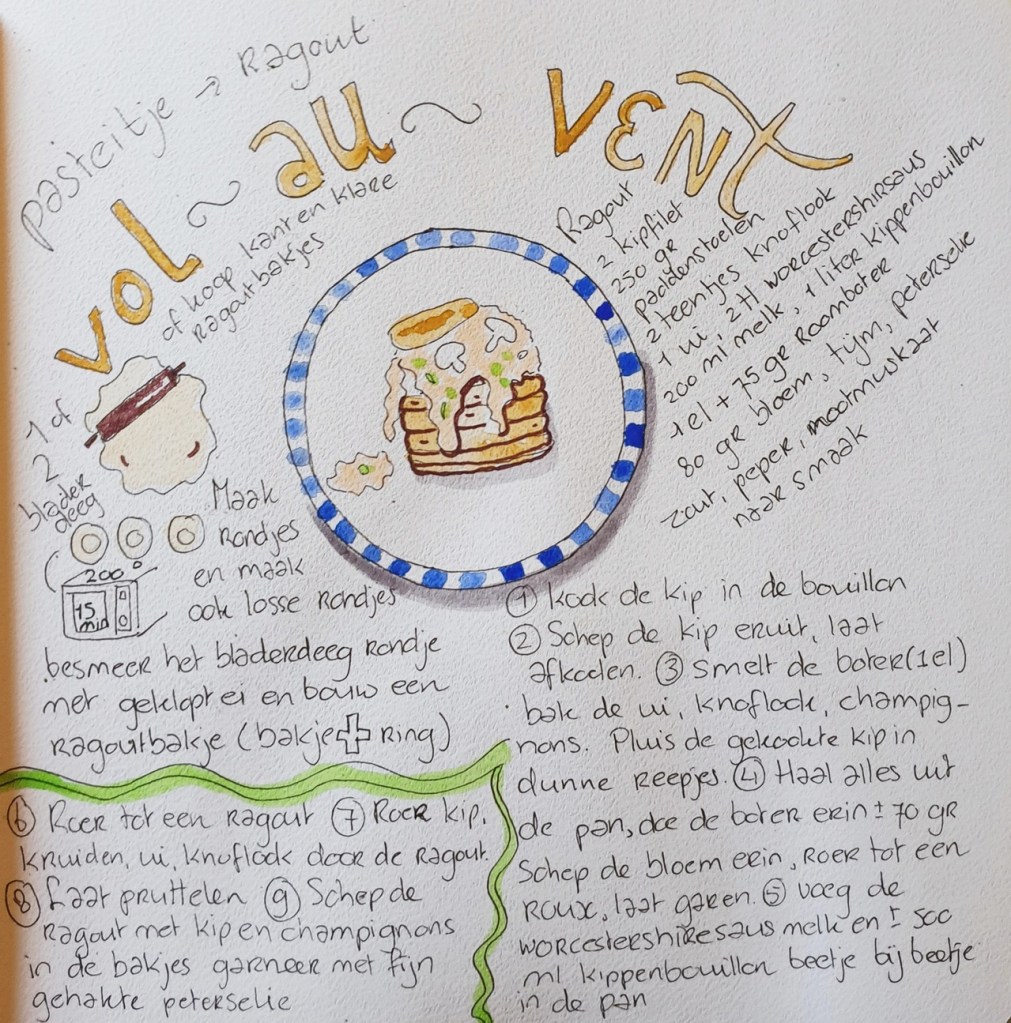 pasteitje → Ragout
VOL ~ au ~ VENT
of koop kant en klare
ragoutbakjes
1 of
2
blader
deeg
Maak
rondjes
en maak
ook losse rondjes
200°
15
min
besmeer het bladerdeeg rondje
met geklopt ei en bouw een
Ragoutbakje (bakje + Ring)
Ragout
2 kipfilet
250 gr
paddenstoelen
2 teentjes knoflook
1 ui, 2 tl worcestershirsaus
200 ml melk, 1 liter kippenbouillon
1 el + 75 gr Roomboter
80 gr bloem, tijm, peterselie
zout, peper, nootmuskaat
naar smaak
① kook de kip in de bouillon
② Schep de kip eruit, laat
afkoelen. ③ smelt de boter (1el)
bak de ui, knoflook, champig-
nons. Pluis de gekookte kip in
dunne reepjes. ④ Haal alles uit
de pan, doe de boter erin ± 70 gr
Schep de bloem erin, Roer tot een
roux, laat garen. ⑤ voeg de
worcestershiresaus melk en ± 500
ml kippenbouillon beetje bij beetje
in de pan
⑥ Roer tot een ragout ⑦ Roer kip,
kruiden, ui, knoflook door de ragout.
⑧ Laat pruttelen ⑨ Schep de
ragout met kip en champignons
in de bakjes garneer met fijn
gehakte peterselie